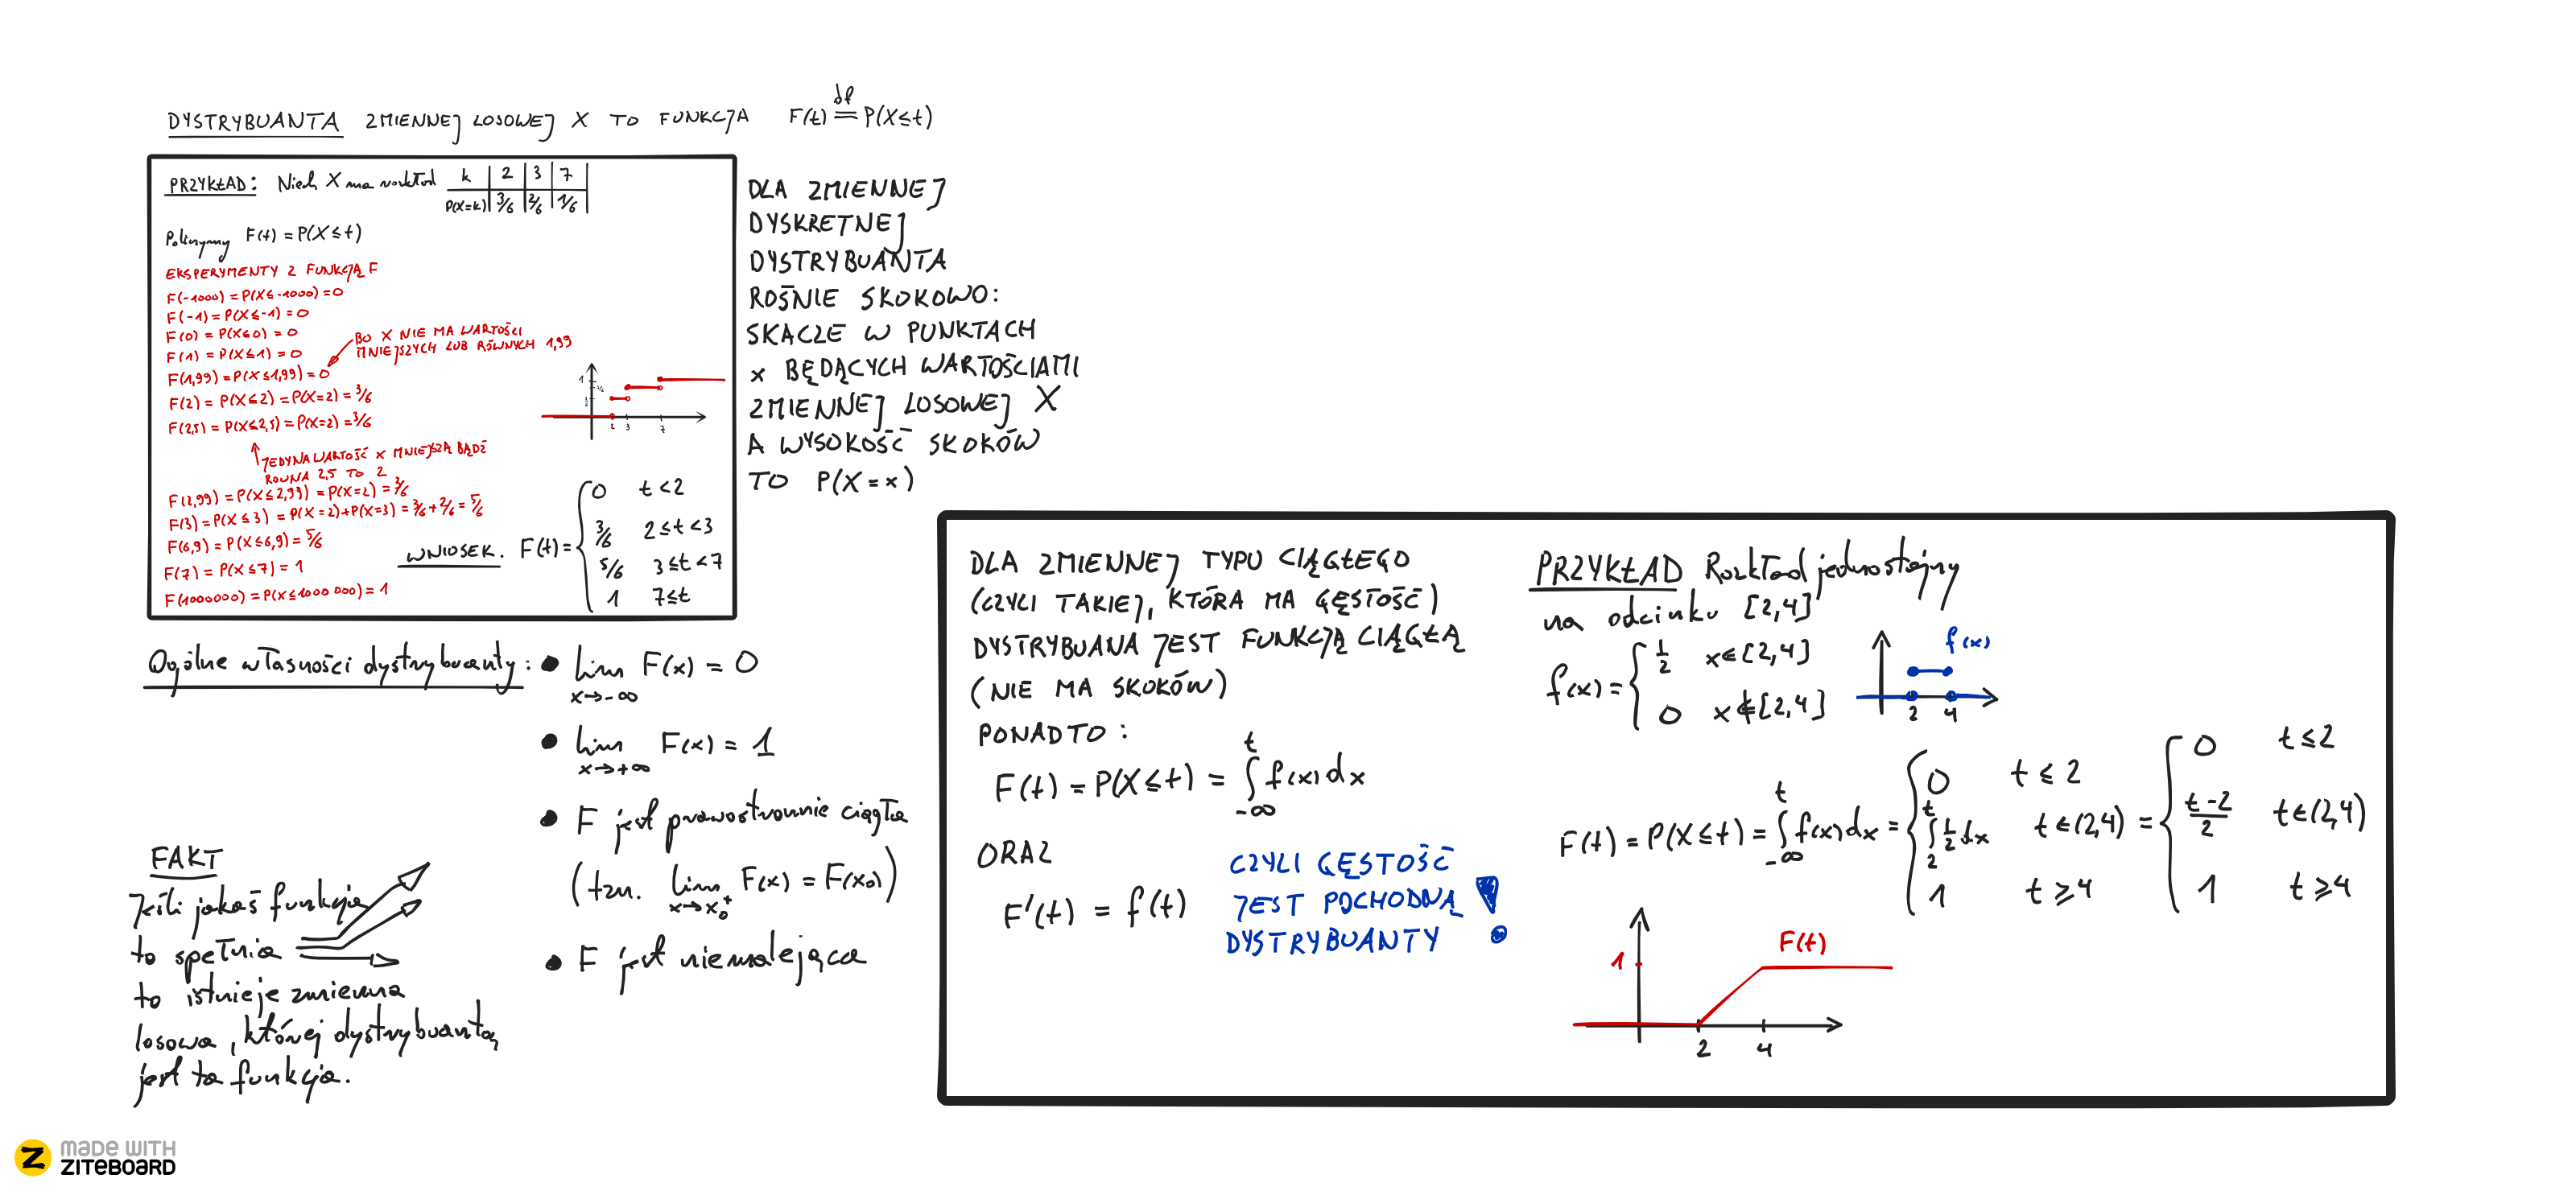 DYSTRYBUANTA ZMIENNEJ LOSOWEJ X TO FUNKCJA F(t) df= P(X≤t)
PRZYKŁAD: Niech X ma rozkład
k 2 3 7
P(X=k) 3/6 2/6 1/6
Policzymy F(t) = P(X≤t)
EKSPERYMENTY Z FUNKCJĄ F
F(-1000) = P(X≤-1000) = 0
F(-1) = P(X≤-1) = 0
F(0) = P(X≤0) = 0
F(1) = P(X≤1) = 0
BO X NIE MA WARTOŚCI
MNIEJSZYCH LUB RÓWNYCH 1,99
F(1,99) = P(X≤1,99) = 0
F(2) = P(X≤2) = P(X=2) = 3/6
F(2,5) = P(X≤2,5) = P(X=2) = 3/6
JEDYNA WARTOŚĆ X MNIEJSZA BĄDŹ
RÓWNA 2,5 TO 2
F(2,99) = P(X≤2,99) = P(X=2) = 3/6
F(3) = P(X≤3) = P(X=2)+P(X=3) = 3/6+2/6 = 5/6
F(6,9) = P(X≤6,9) = 5/6
F(7) = P(X≤7) = 1
F(1000000) = P(X≤1000 000) = 1
1
2 3 7
WNIOSEK. F(t) =
0 t<2
3/6 2≤t<3
5/6 3≤t<7
1 7≤t
DLA ZMIENNEJ
DYSKRETNEJ
DYSTRYBUANTA
ROŚNIE SKOKOWO:
SKACZE W PUNKTACH
x BĘDĄCYCH WARTOŚCIAMI
ZMIENNEJ LOSOWEJ X
A WYSOKOŚĆ SKOKÓW
TO P(X=x)
Ogólne własności dystrybuanty:
• lim x→-∞ F(x) = 0
• lim x→+∞ F(x) = 1
• F jest prawostronnie ciągła
(tzn. lim x→x₀⁺ F(x) = F(x₀))
• F jest niemalejąca
FAKT
Jeśli jakaś funkcja
to spełnia
to istnieje zmienna
losowa, której dystrybuantą
jest ta funkcja.
DLA ZMIENNEJ TYPU CIĄGŁEGO
(CZYLI TAKIEJ, KTÓRA MA GĘSTOŚĆ)
DYSTRYBUANA JEST FUNKCJĄ CIĄGŁĄ
(NIE MA SKOKÓW)
PONADTO:
F(t) = P(X≤t) = ∫_{-∞}^{t} f(x)dx
ORAZ
F'(t) = f(t)
CZYLI GĘSTOŚĆ
JEST POCHODNĄ
DYSTRYBUANTY !
PRZYKŁAD Rozkład jednostajny
na odcinku [2,4]
f(x) =
1/2 x∈[2,4]
0 x∉[2,4]
f(x)
2 4
F(t) = P(X≤t) = ∫_{-∞}^{t} f(x)dx =
0 t≤2
∫_{2}^{t} 1/2 dx t∈(2,4)
1 t≥4
=
0 t≤2
t-2/2 t∈(2,4)
1 t≥4
F(t)
1
2 4
MADE WITH
ZITEBOARD